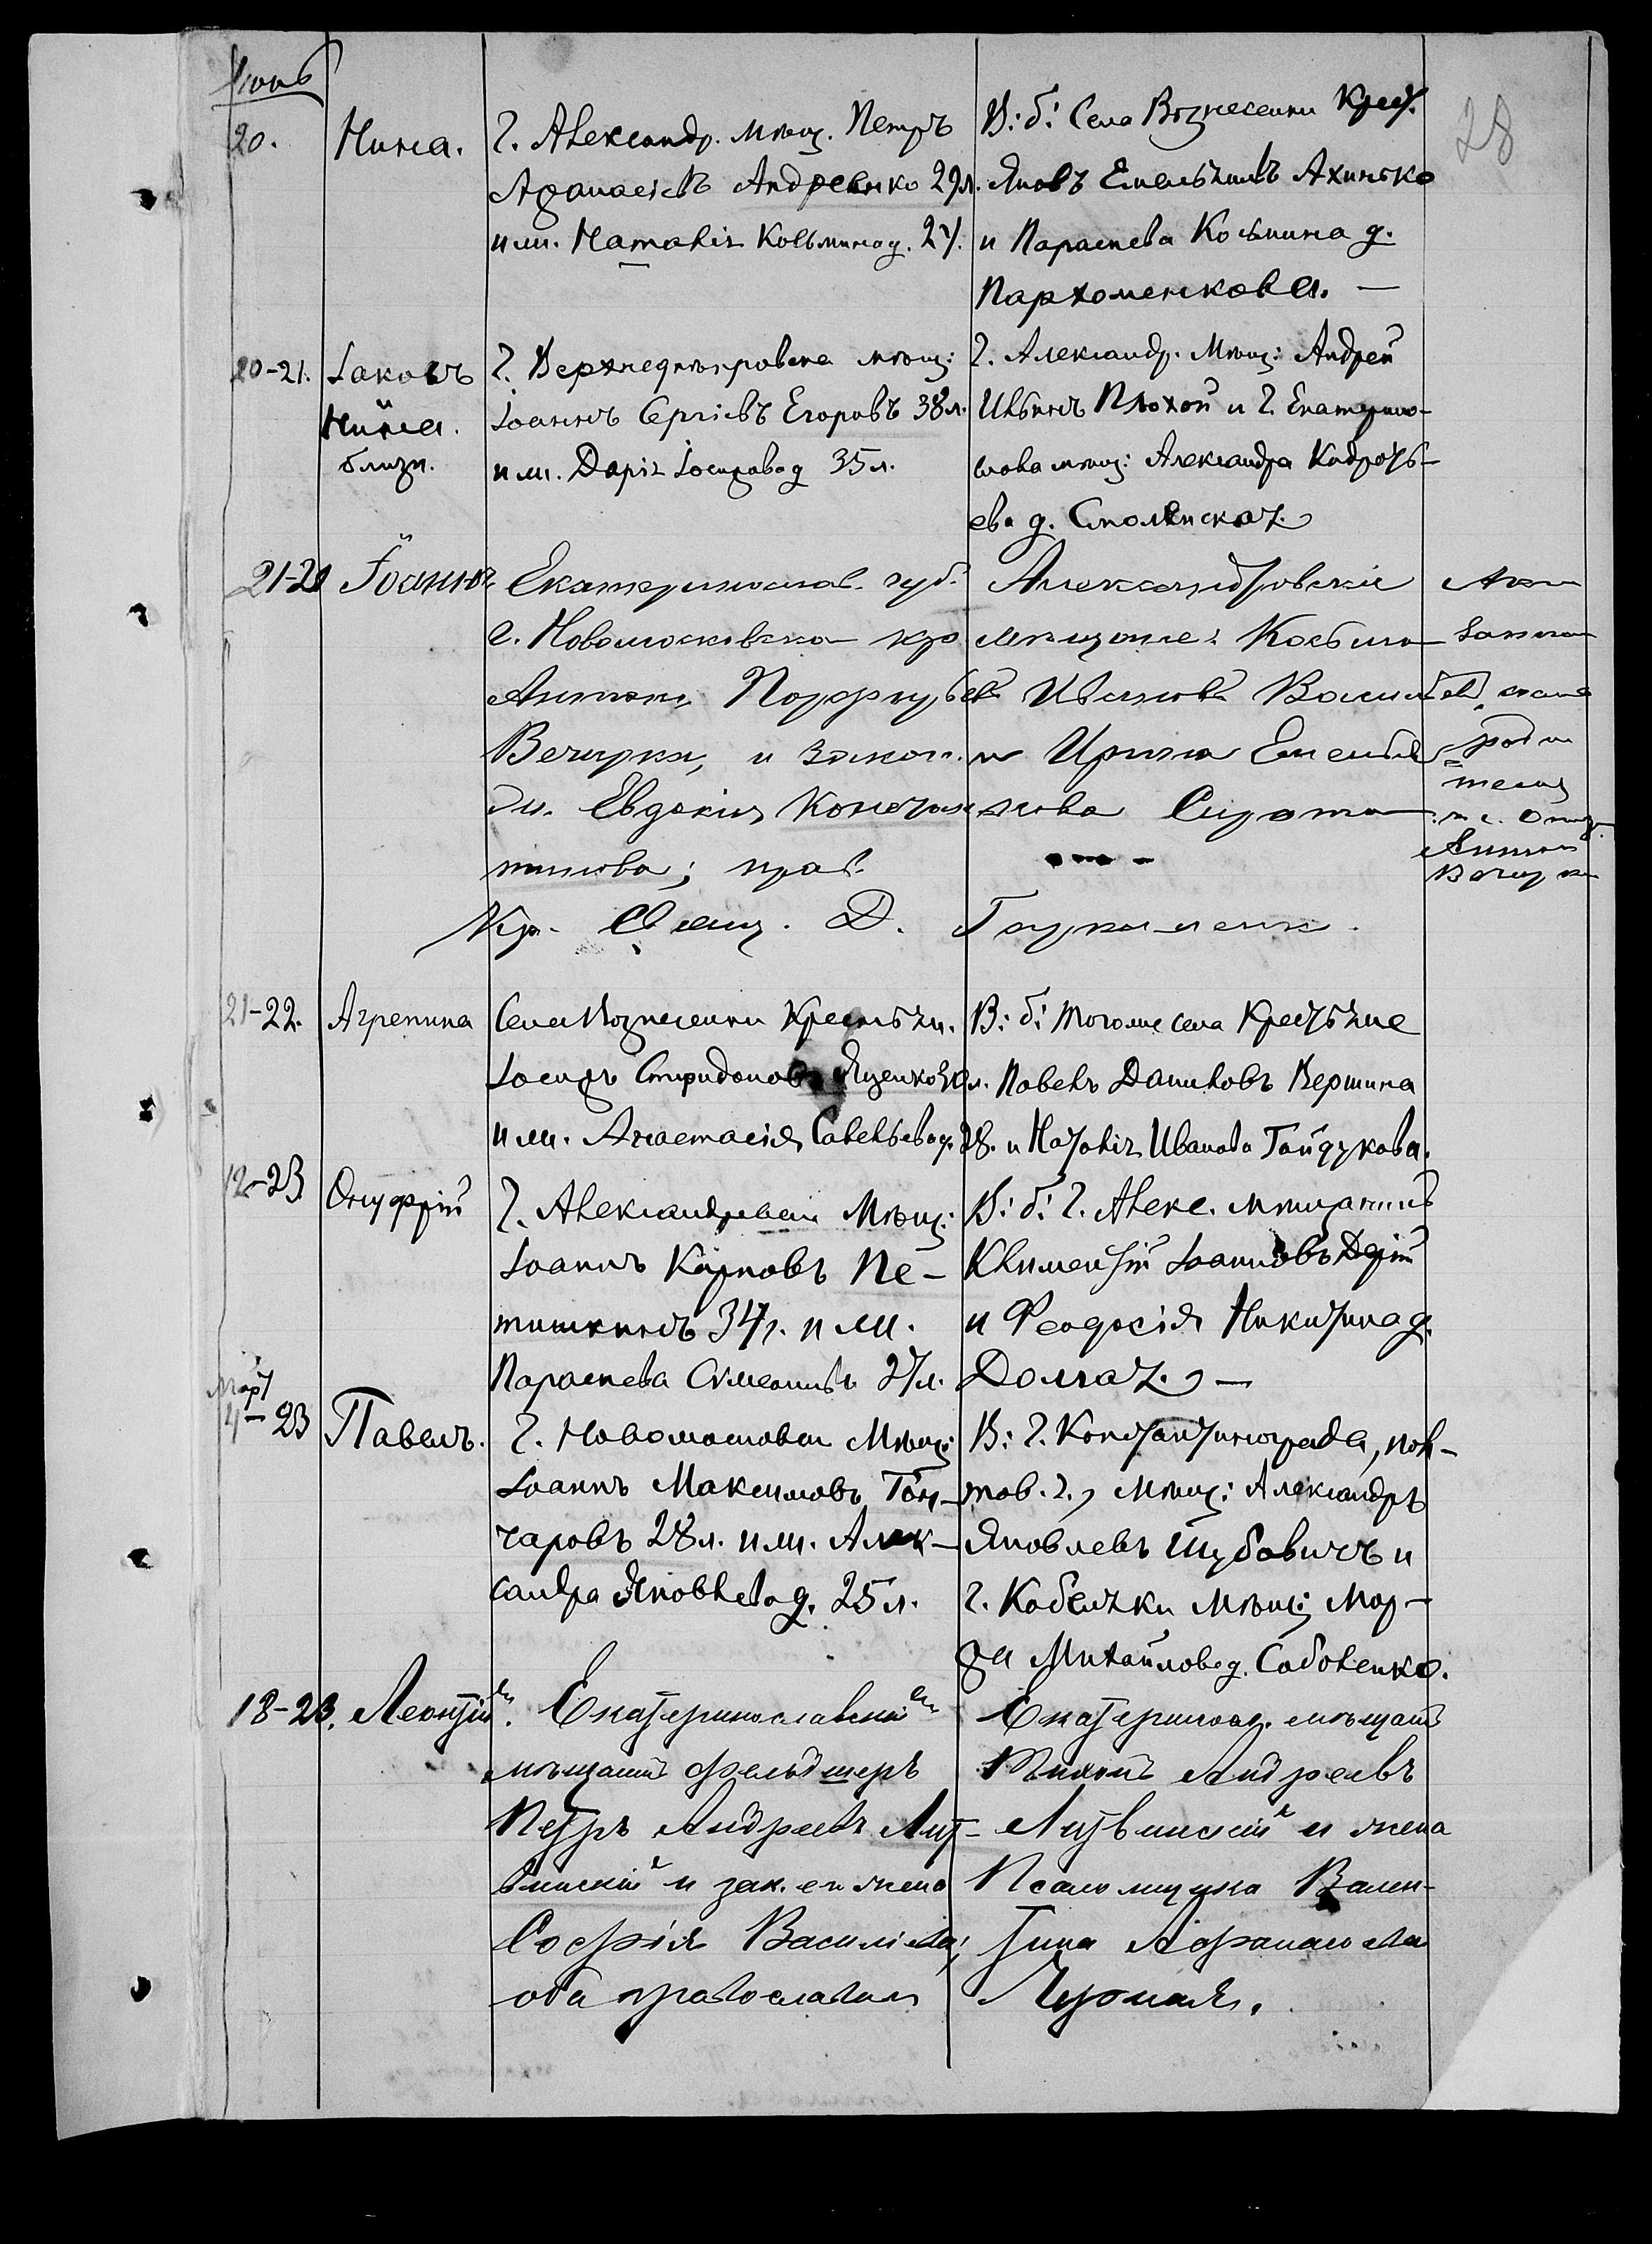 Іюнь
28
20.
Нина.
Г. Александр. мѣщ. Петръ
Аѳанасіевъ Андреенко 29 л.
и ж. Наталія Козьмина д. 24.
В: б: Села Вознесенки Крест.
Яковъ Емельяновъ Ахинько
и Параскева Косьмина д.
Пархоменкова. —
20-21.
Іаковъ
Нина.
близн.
Г. Верхнеднѣпровска мѣщ:
Іоаннъ Сергіевъ Егоровъ 38 л.
и ж. Дарія Іосифова д 35 л.
Г. Александр. Мѣщ: Андрей
Ильинъ Плохой и Г. Екатерино-
слова мѣщ: Александра Кодроть-
ева д. Смоленская.
21-21
Іоаннъ
Екатеринослав. губ.
г. Новомосковска кр.
Антоній Порфирьев
Вечирка, и закон.
ж. Евдокія Констан
тинова; прав.
Александровскіе
мѣщане: Косьма
Ивановъ Васильев
и Ирина Емелья
нова Сирота
родителя
Антон
Вечирка
Кр. Свящ. Д.
21-22.
Агрепина
Села Вознесенки Крестьян.
Іосифъ Спиридоновъ Яценко 30 л.
и ж. Анастасія Савельева д. 28.
В: б: тогоже села Крестьяне
Павелъ Даниловъ Вершина
и Наталія Иванова Гайдукова.
12-23
Онуфрій
Г. Александровска Мѣщ:
Іоаннъ Карповъ Пе-
тишкинъ 34 г. и ж.
Параскева Симеонова 27 л.
В: б: Г. Алекс. мѣщанинъ
Климентій Іоанновъ
и Феодосія Никитина д.
Долгая. —
Март
4-23
Павелъ.
Г. Новомосковска Мѣщ:
Іоаннъ Максимовъ Гон-
чаровъ 28 л. и ж. Алек-
сандра Яковлева д. 25 л.
В: Г. Константинограда, пол-
тов. г., мѣщ: Александръ
Яковлевъ Шубовичъ и
г. Кобеляки Мѣщ: Мар-
фа Михайлова д. Соболенко.
18-23.
Леонтій.
Екатеринославскій
мѣщанинъ фельдшеръ
Петръ Андреевъ Лит-
винскій и зак. его жена
Софія Василіева;
оба православныя
Екатеринос. мѣщанинъ
Тихонъ Андреевъ
Литвинскій и жена
Псаломщика Вален-
тина Афанасьева